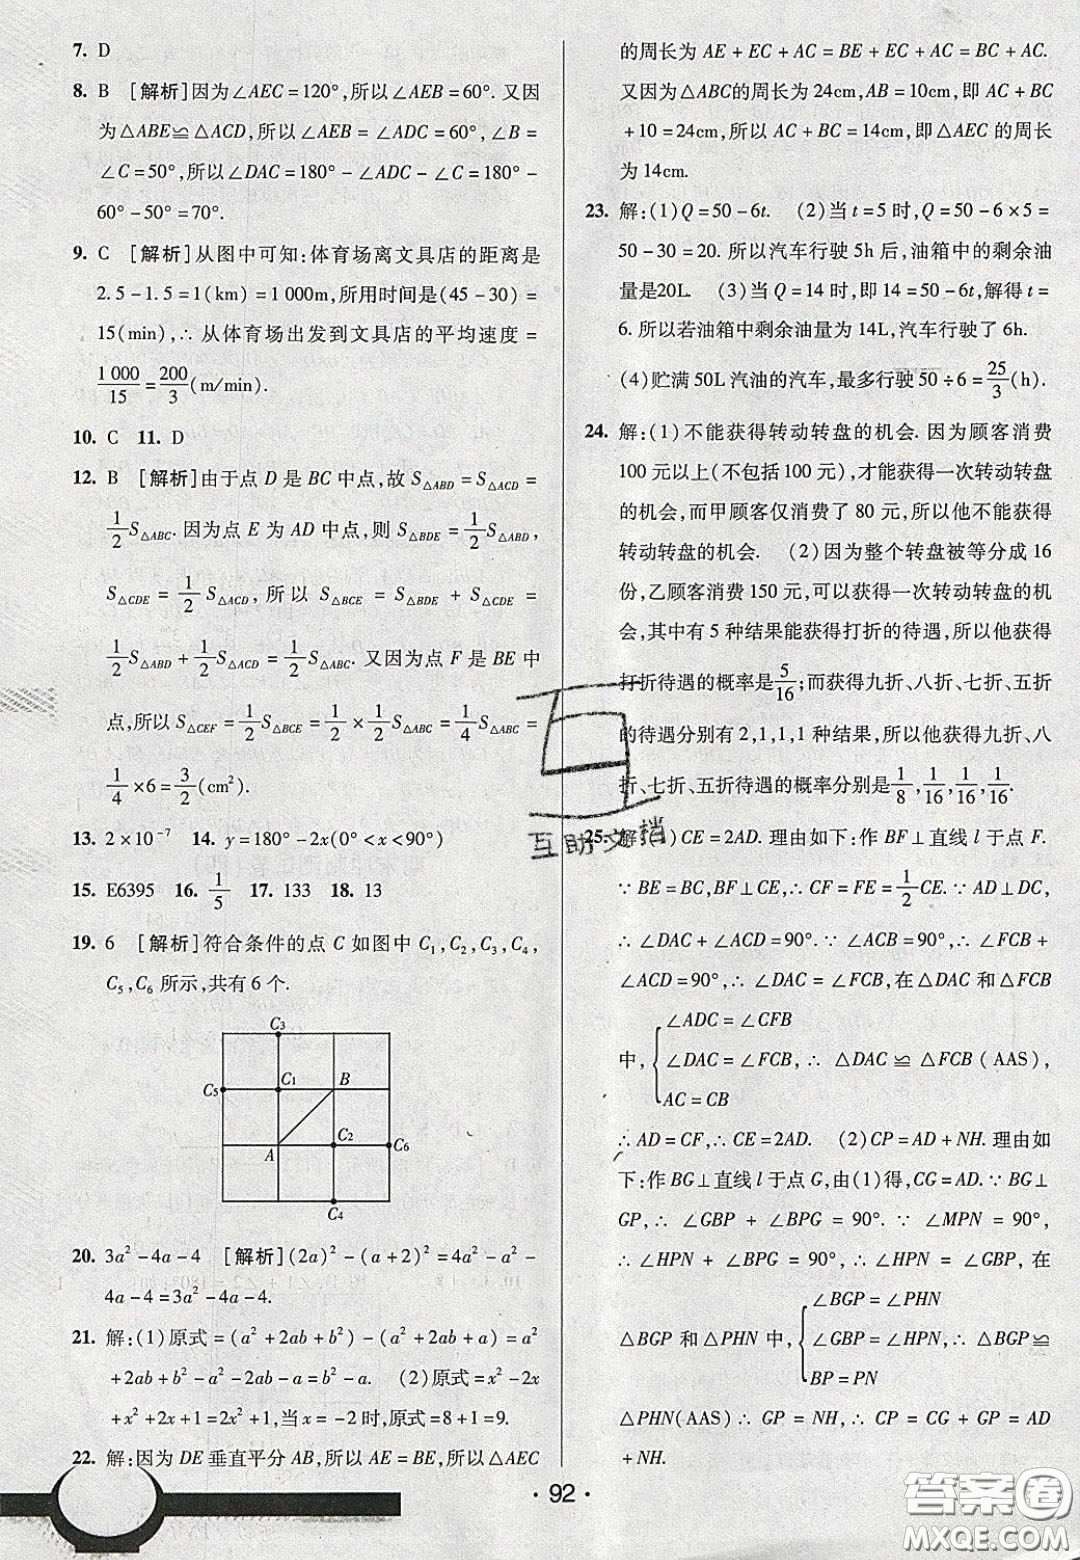 7. D
8. B [解析]因为∠AEC=120°,所以∠AEB=60°. 又因
为△ABE≌△ACD,所以∠AEB=∠ADC=60°,∠B=
∠C=50°,所以∠DAC=180°-∠ADC-∠C=180°-
60°-50°=70°.
9. C [解析]从图中可知:体育场离文具店的距离是
2.5-1.5=1(km)=1 000m,所用时间是(45-30)=
15(min),∴从体育场出发到文具店的平均速度=
1 000/15=200/3(m/min).
10. C 11. D
12. B [解析]由于点D是BC中点,故S△ABD=S△ACD=
1/2S△ABC. 因为点E为AD中点,则S△BDE=1/2S△ABD,
S△CDE=1/2S△ACD,所以S△BCE=S△BDE+S△CDE=
1/2S△ABD+1/2S△ACD=1/2S△ABC. 又因为点F是BE中
点,所以S△CEF=1/2S△BCE=1/2×1/2S△ABC=1/4S△ABC=
1/4×6=3/2(cm²).
13. 2×10⁻⁷ 14. y=180°-2x(0°<x<90°)
15. E6395 16. 1/5 17. 133 18. 13
19. 6 [解析]符合条件的点C如图中C₁,C₂,C₃,C₄,
C₅,C₆所示,共有6个.
C₃
C₅ C₁ B
A C₂ C₆
C₄
20. 3a²-4a-4 [解析](2a)²-(a+2)²=4a²-a²-
4a-4=3a²-4a-4.
21. 解:(1)原式=(a²+2ab+b²)-(a²+2ab+a)=a²
+2ab+b²-a²-2ab-a=b²-a. (2)原式=x²-2x
+x²+2x+1=2x²+1,当x=-2时,原式=8+1=9.
22. 解:因为DE垂直平分AB,所以AE=BE,所以△AEC
的周长为AE+EC+AC=BE+EC+AC=BC+AC.
又因为△ABC的周长为24cm,AB=10cm,即AC+BC
+10=24cm,所以AC+BC=14cm,即△AEC的周长
为14cm.
23. 解:(1)Q=50-6t. (2)当t=5时,Q=50-6×5=
50-30=20. 所以汽车行驶5h后,油箱中的剩余油
量是20L. (3)当Q=14时,即14=50-6t,解得t=
6. 所以若油箱中剩余油量为14L,汽车行驶了6h.
(4)贮满50L汽油的汽车,最多行驶50÷6=25/3(h).
24. 解:(1)不能获得转动转盘的机会. 因为顾客消费
100元以上(不包括100元),才能获得一次转动转盘
的机会,而甲顾客仅消费了80元,所以他不能获得
转动转盘的机会. (2)因为整个转盘被等分成16
份,乙顾客消费150元,可以获得一次转动转盘的机
会,其中有5种结果能获得打折的待遇,所以他获得
打折待遇的概率是5/16;而获得九折、八折、七折、五折
的待遇分别有2,1,1,1种结果,所以他获得九折、八
折、七折、五折待遇的概率分别是1/8,1/16,1/16,1/16.
25. 解:(1)CE=2AD. 理由如下:作BF⊥直线l于点F.
∵BE=BC,BF⊥CE,∴CF=FE=1/2CE. ∵AD⊥DC,
∴∠DAC+∠ACD=90°. ∵∠ACB=90°,∴∠FCB+
∠ACD=90°,∴∠DAC=∠FCB,在△DAC和△FCB
∠ADC=∠CFB
中,{∠DAC=∠FCB,∴△DAC≌△FCB(AAS),
AC=CB
∴AD=CF,∴CE=2AD. (2)CP=AD+NH. 理由如
下:作BG⊥直线l于点G,由(1)得,CG=AD. ∵BG⊥
GP,∴∠GBP+∠BPG=90°. ∵∠MPN=90°,
∴∠HPN+∠BPG=90°,∴∠HPN=∠GBP,在
∠BGP=∠PHN
△BGP和△PHN中,{∠GBP=∠HPN,∴△BGP≌
BP=PN
△PHN(AAS)∴GP=NH,∴CP=CG+GP=AD
+NH.
互助文档
· 92 ·
答案圈
MXQE.COM